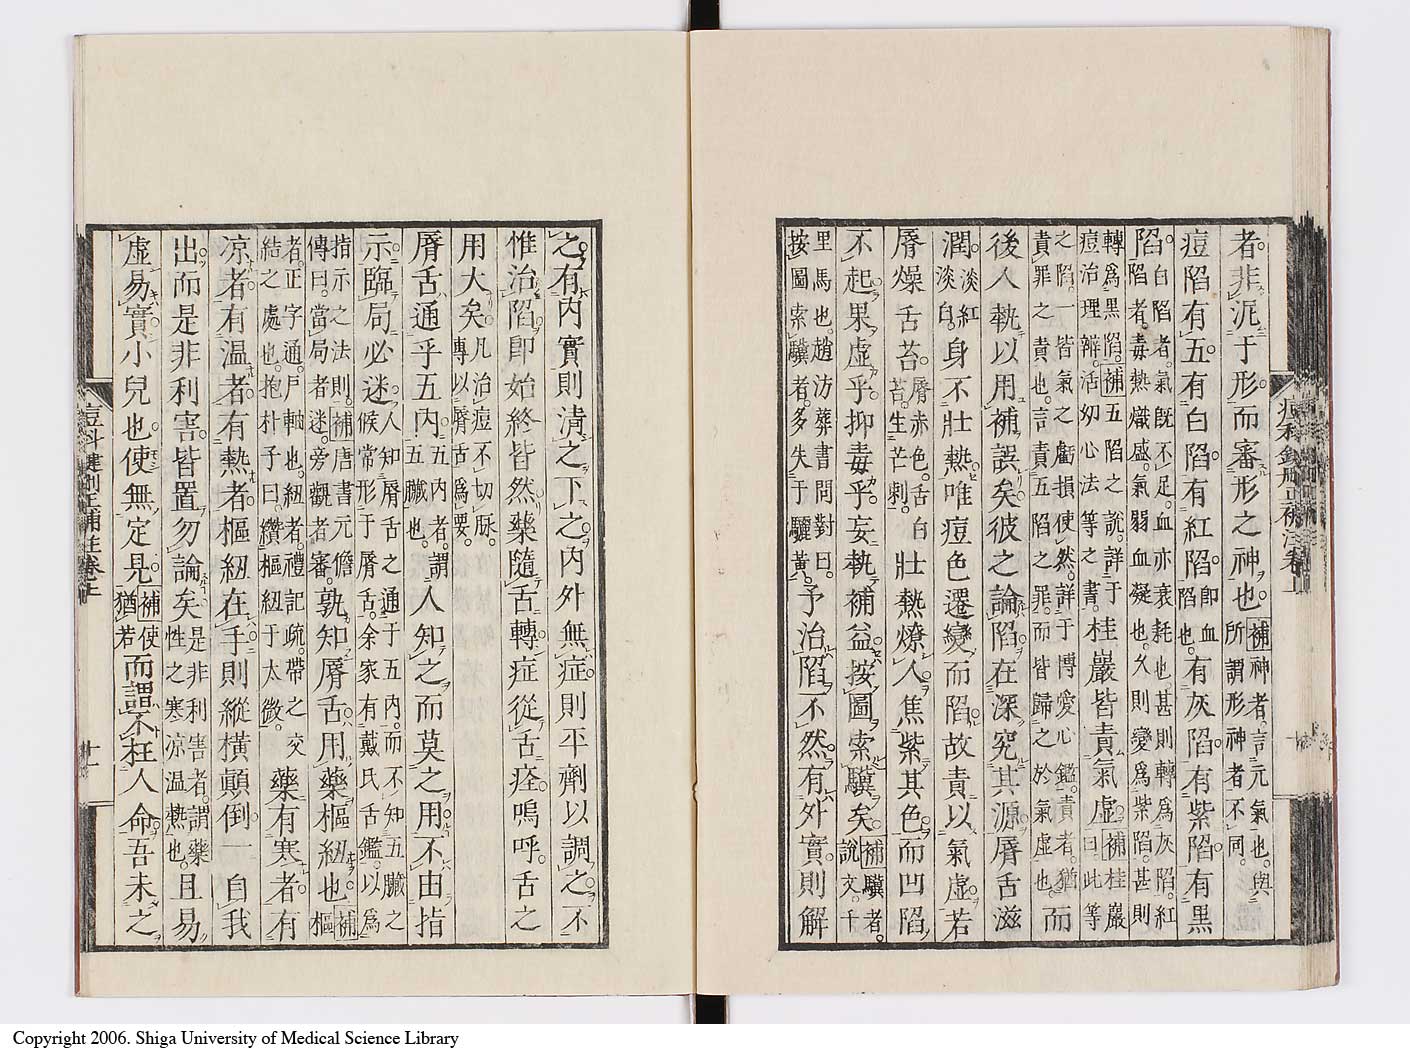 者非泥于形而審形之神也補神者言元氣也與所謂形神者不同
痘陷有五有白陷有紅陷卽血陷也有灰陷有紫陷有黑
陷白陷者氣旣不足血亦衰耗也甚則轉爲灰陷紅陷者毒熱熾盛氣弱血凝也久則變爲紫陷甚則
轉爲黑陷補五陷之說詳于痘治理辯活幼心法等之書桂巖皆責氣虛補桂巖曰此等
之陷一皆氣之虧損使然詳于博愛心鑑責者猶責罪之責也言責五陷之罪而皆歸之於氣虛也而
後人執以用補誤矣彼之論陷在深究其源脣舌滋
潤淡紅淡白身不壯熱唯痘色遷變而陷故責以氣虛若
脣燥舌苔脣赤色舌白苔生芒刺壯熱燎人焦紫其色而凹陷
不起果虛乎抑毒乎妄執補益按圖索驥矣補驥者說文千
里馬也趙汸葬書問對曰按圖索驥者多失于驪黃予治陷不然有外實則解
之有內實則清之下之內外無症則平劑以調之不
惟治陷卽始終皆然藥隨舌轉症從舌痊嗚呼舌之
用大矣凡治痘不切脈專以脣舌爲要
脣舌通乎五內五內者謂五臟也人知之而莫之用不由指
示臨局必迷人知脣舌之通于五內而不知五臟之候常形于脣舌余家有戴氏舌鑑以爲
指示之法則補唐書元儋傳曰當局者迷旁觀者審孰知脣舌用藥樞紐也補樞
者正字通戶軸也紐者禮記疏帶之交結之處也抱朴子曰纘樞紐于太微藥有寒者有
凉者有温者有熱者樞紐在手則縱橫顛倒一自我
出而是非利害皆置勿論矣是非利害者謂藥性之寒凉温熱也且易
虛易實小兒也使無定見補使猶若而謂不枉人命吾未之